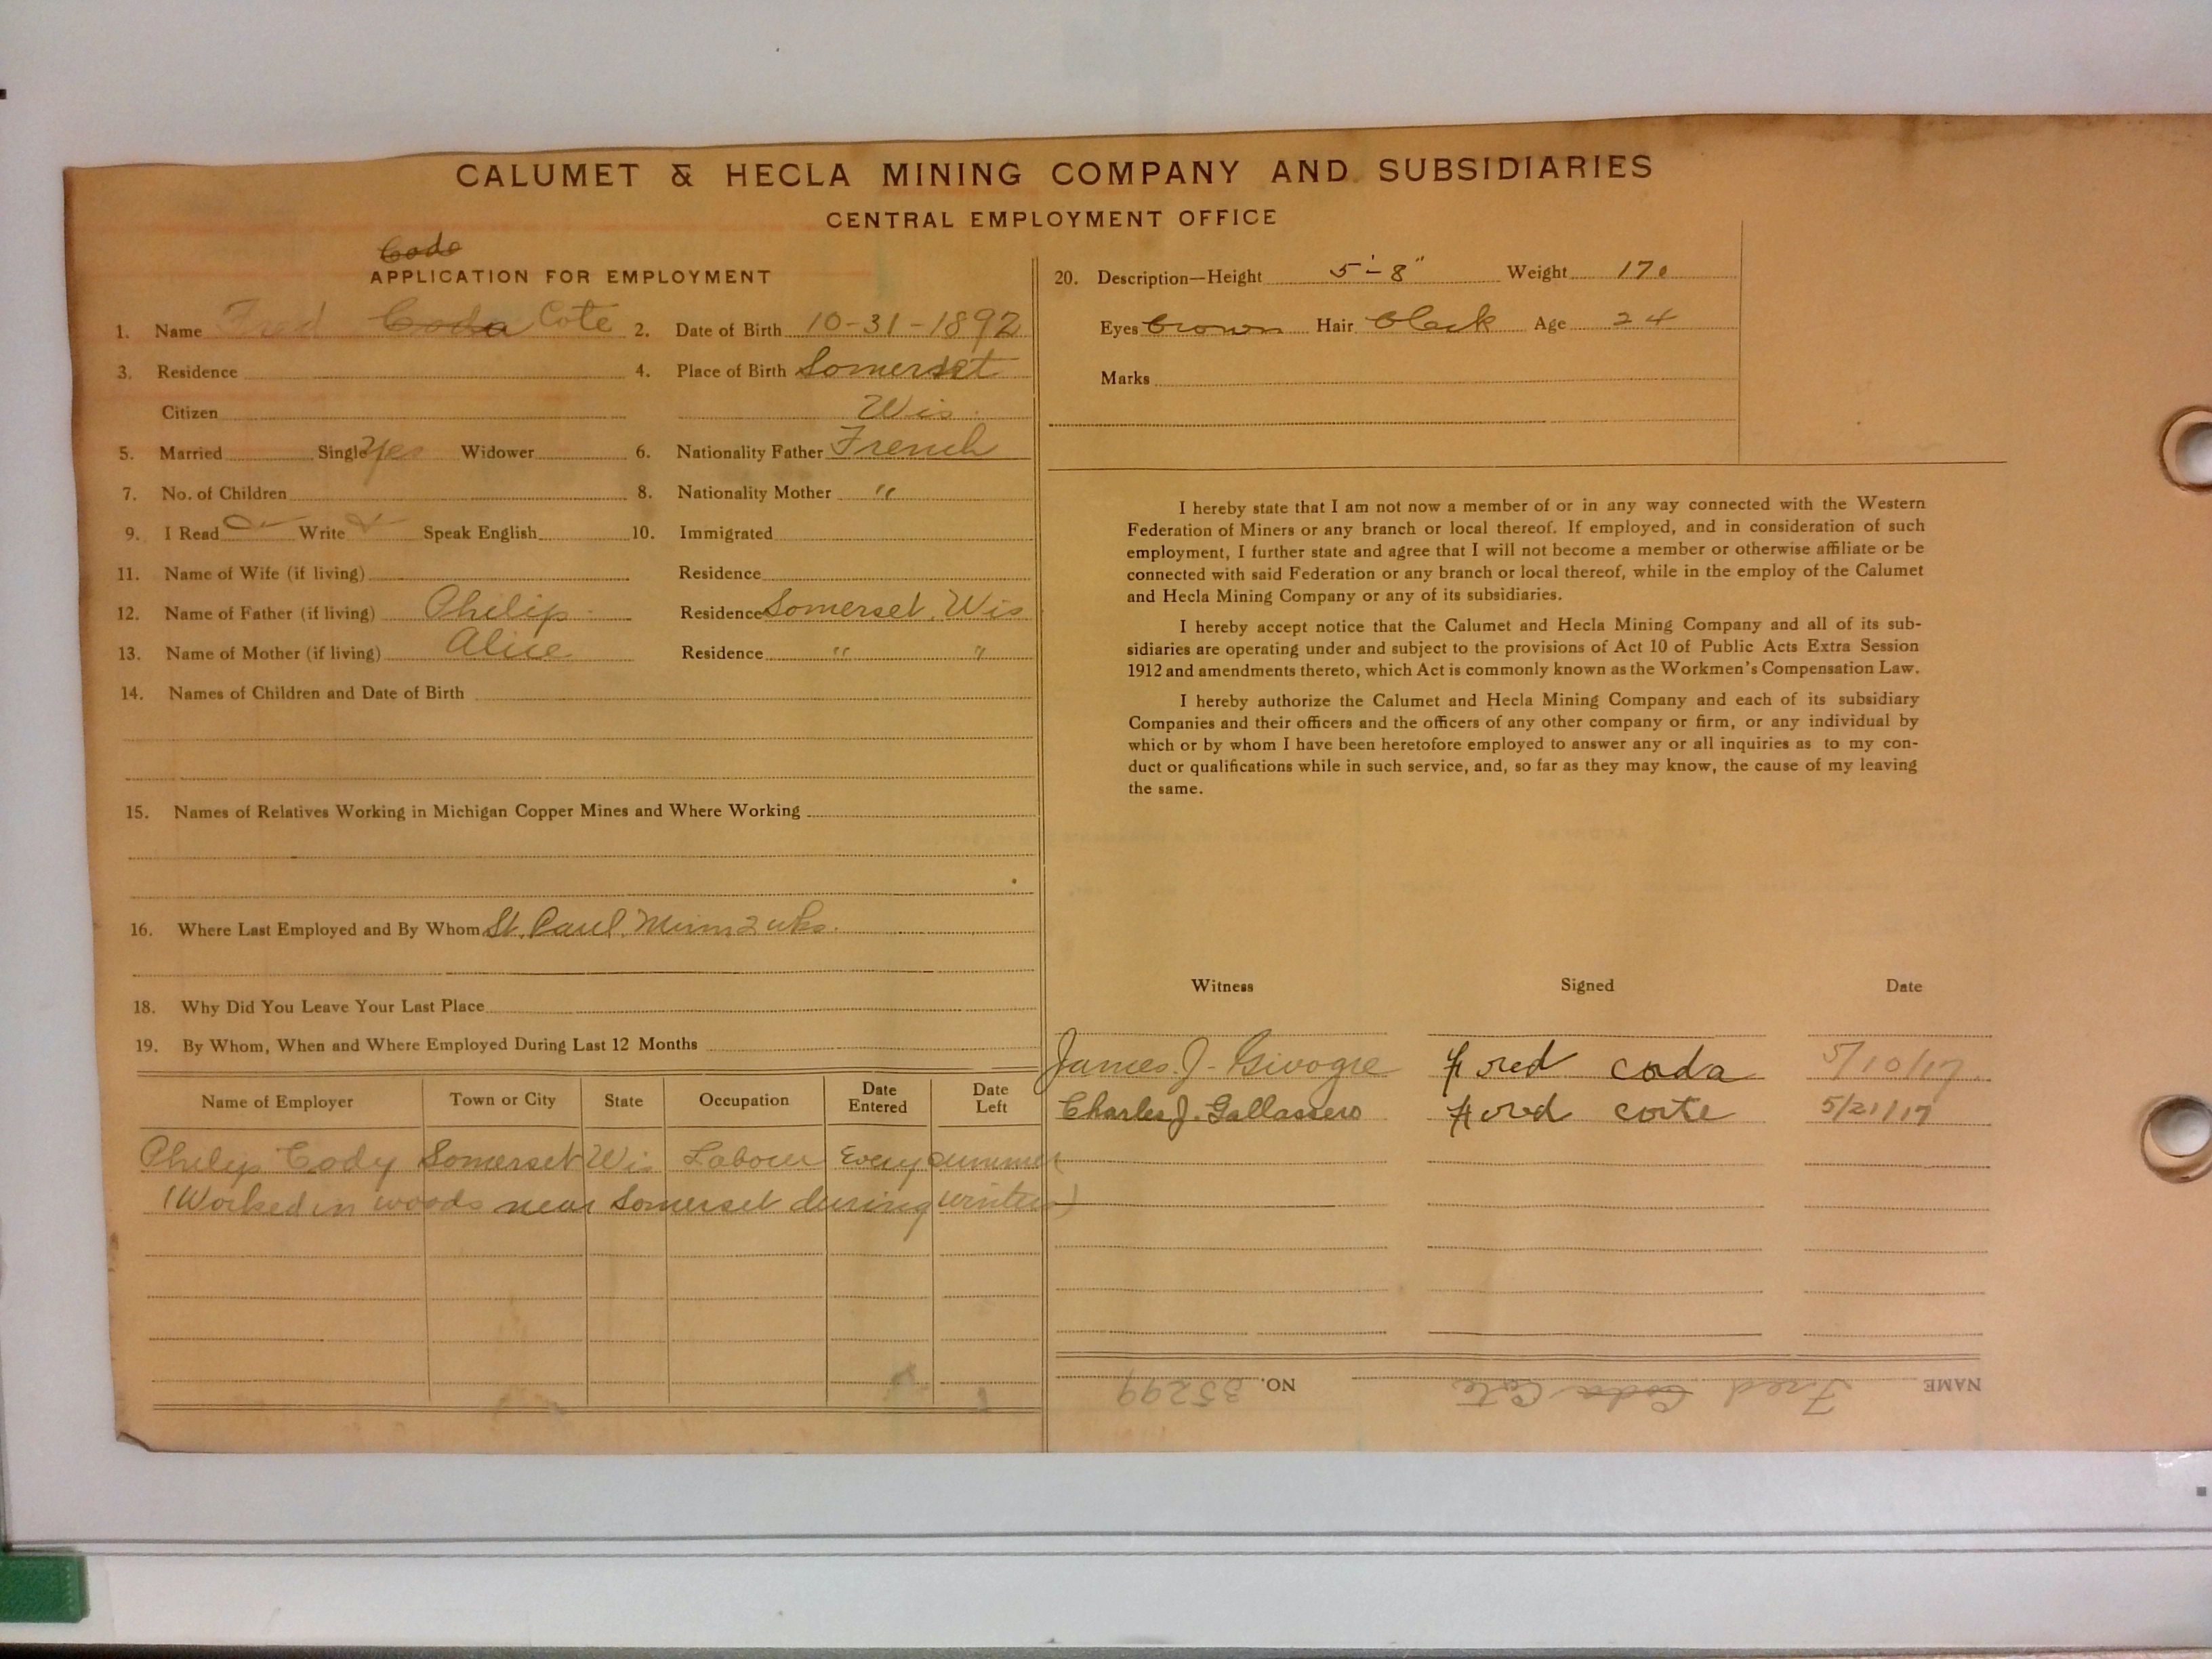 CALUMET & HECLA MINING COMPANY AND SUBSIDIARIES
CENTRAL EMPLOYMENT OFFICE
Coda
APPLICATION FOR EMPLOYMENT
1. Name Fred Coda Cote 2. Date of Birth 10-31-1892
3. Residence 4. Place of Birth Somerset
Citizen Wis.
5. Married Single Yes Widower 6. Nationality Father French
7. No. of Children 8. Nationality Mother "
9. I Read Write Speak English 10. Immigrated
11. Name of Wife (if living) Residence
12. Name of Father (if living) Philip Residence Somerset, Wis
13. Name of Mother (if living) Alice Residence " "
14. Names of Children and Date of Birth
15. Names of Relatives Working in Michigan Copper Mines and Where Working
16. Where Last Employed and By Whom St. Paul, Minn 2 wks.
18. Why Did You Leave Your Last Place
19. By Whom, When and Where Employed During Last 12 Months
Name of Employer Town or City State Occupation Date Entered Date Left
Philip Cody Somerset Wis Labour Every summer
(Worked in woods near Somerset during winters)
20. Description—Height 5'-8" Weight 170
Eyes brown Hair black Age 24
Marks
I hereby state that I am not now a member of or in any way connected with the Western
Federation of Miners or any branch or local thereof. If employed, and in consideration of such
employment, I further state and agree that I will not become a member or otherwise affiliate or be
connected with said Federation or any branch or local thereof, while in the employ of the Calumet
and Hecla Mining Company or any of its subsidiaries.
I hereby accept notice that the Calumet and Hecla Mining Company and all of its sub-
sidiaries are operating under and subject to the provisions of Act 10 of Public Acts Extra Session
1912 and amendments thereto, which Act is commonly known as the Workmen's Compensation Law.
I hereby authorize the Calumet and Hecla Mining Company and each of its subsidiary
Companies and their officers and the officers of any other company or firm, or any individual by
which or by whom I have been heretofore employed to answer any or all inquiries as to my con-
duct or qualifications while in such service, and, so far as they may know, the cause of my leaving
the same.
Witness Signed Date
James J. Givogre Fred coda 5/10/17
Charles J. Gallassero Fred cote 5/21/17
NAME Fred Coda Cote NO. 35299